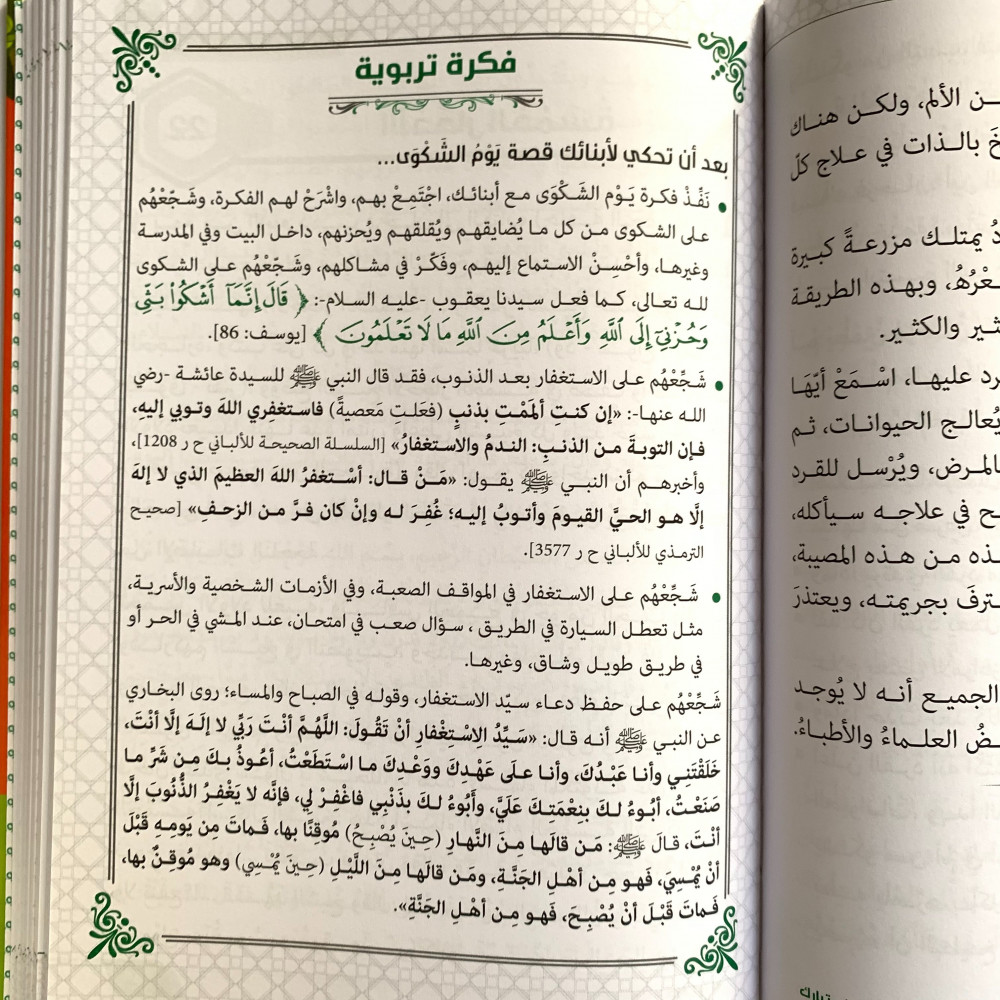 فكرة تربوية
بعد أن تحكي لأبنائك قصة يَوْمُ الشَّكْوَى...
• نَفِّذْ فكرة يَوْم الشَكْوَى مع أبنائك، اجْتَمِعْ بهم، واشْرَحْ لهم الفكرة، وشَجِّعْهُم
على الشكوى من كل ما يُضايقهم ويُقلقهم ويُحزنهم، داخل البيت وفي المدرسة
وغيرها، وأحْسِنْ الاستماع إليهم، وفَكّرْ في مشاكلهم، وشَجِّعْهُم على الشكوى
لله تعالى، كما فعل سيدنا يعقوب -عليه السلام-: ﴿ قَالَ إِنَّمَآ أَشْكُوا۟ بَثِّى
وَحُزْنِىٓ إِلَى ٱللَّهِ وَأَعْلَمُ مِنَ ٱللَّهِ مَا لَا تَعْلَمُونَ ﴾ [يوسف: 86].
• شَجِّعْهُم على الاستغفار بعد الذنوب، فقد قال النبي ﷺ للسيدة عائشة -رضي
الله عنها-: «إن كنتِ ألمَمْتِ بذنبٍ (فعَلتِ مَعصيةً) فاستغفِري اللهَ وتوبي إليهِ،
فإن التوبةَ من الذنبِ: الندمُ والاستغفارُ» [السلسلة الصحيحة للألباني ح ر 1208]،
وأخبرهم أن النبي ﷺ يقول: «مَنْ قال: أسْتغفرُ اللهَ العظيمَ الذي لا إلهَ
إلَّا هو الحيَّ القيومَ وأتوبُ إليه؛ غُفِرَ له وإنْ كان فرَّ من الزحفِ» [صحيح
الترمذي للألباني ح ر 3577].
• شَجِّعْهُم على الاستغفار في المواقف الصعبة، وفي الأزمات الشخصية والأسرية،
مثل تعطل السيارة في الطريق ، سؤال صعب في امتحان، عند المشي في الحر أو
في طريق طويل وشاق، وغيرها.
شَجِّعْهُم على حفظ دعاء سيّد الاستغفار، وقوله في الصباح والمساء؛ روى البخاري
عن النبي ﷺ أنه قال: «سَيِّدُ الِاسْتِغْفارِ أنْ تَقُولَ: اللَّهُمَّ أنْتَ رَبِّي لا إلَهَ إلَّا أنْتَ،
خَلَقْتَنِي وأنا عَبْدُكَ، وأنا علَى عَهْدِكَ ووَعْدِكَ ما اسْتَطَعْتُ، أعُوذُ بكَ مِن شَرِّ ما
صَنَعْتُ، أبُوءُ لكَ بنِعْمَتِكَ عَلَيَّ، وأَبُوءُ لكَ بذَنْبِي فاغْفِرْ لِي، فإنَّه لا يَغْفِرُ الذُّنُوبَ إلَّا
أنْتَ، قالَ ﷺ: مَن قالَها مِنَ النَّهارِ (حِينَ يُصْبِحُ) مُوقِنًا بها، فَماتَ مِن يَومِهِ قَبْلَ
أنْ يُمْسِيَ، فَهو مِن أهْلِ الجَنَّةِ، ومَن قالَها مِنَ اللَّيْلِ (حِينَ يُمْسِي) وهو مُوقِنٌ بها،
فَماتَ قَبْلَ أنْ يُصْبِحَ، فَهو مِن أهْلِ الجَنَّةِ».
الألم، ولكن هناك
بالذات في علاج كلّ
يمتلك مزرعةً كبيرة
وبهذه الطريقة
والكثير.
عليها، اسْمَعْ أيّهَا
يُعالج الحيوانات، ثم
بالمرض، ويُرْسل للقرد
في علاجه سيأكله،
من هذه المصيبة،
بجريمته، ويعتذرَ
الجميع أنه لا يُوجد
العلماءُ والأطباءُ.